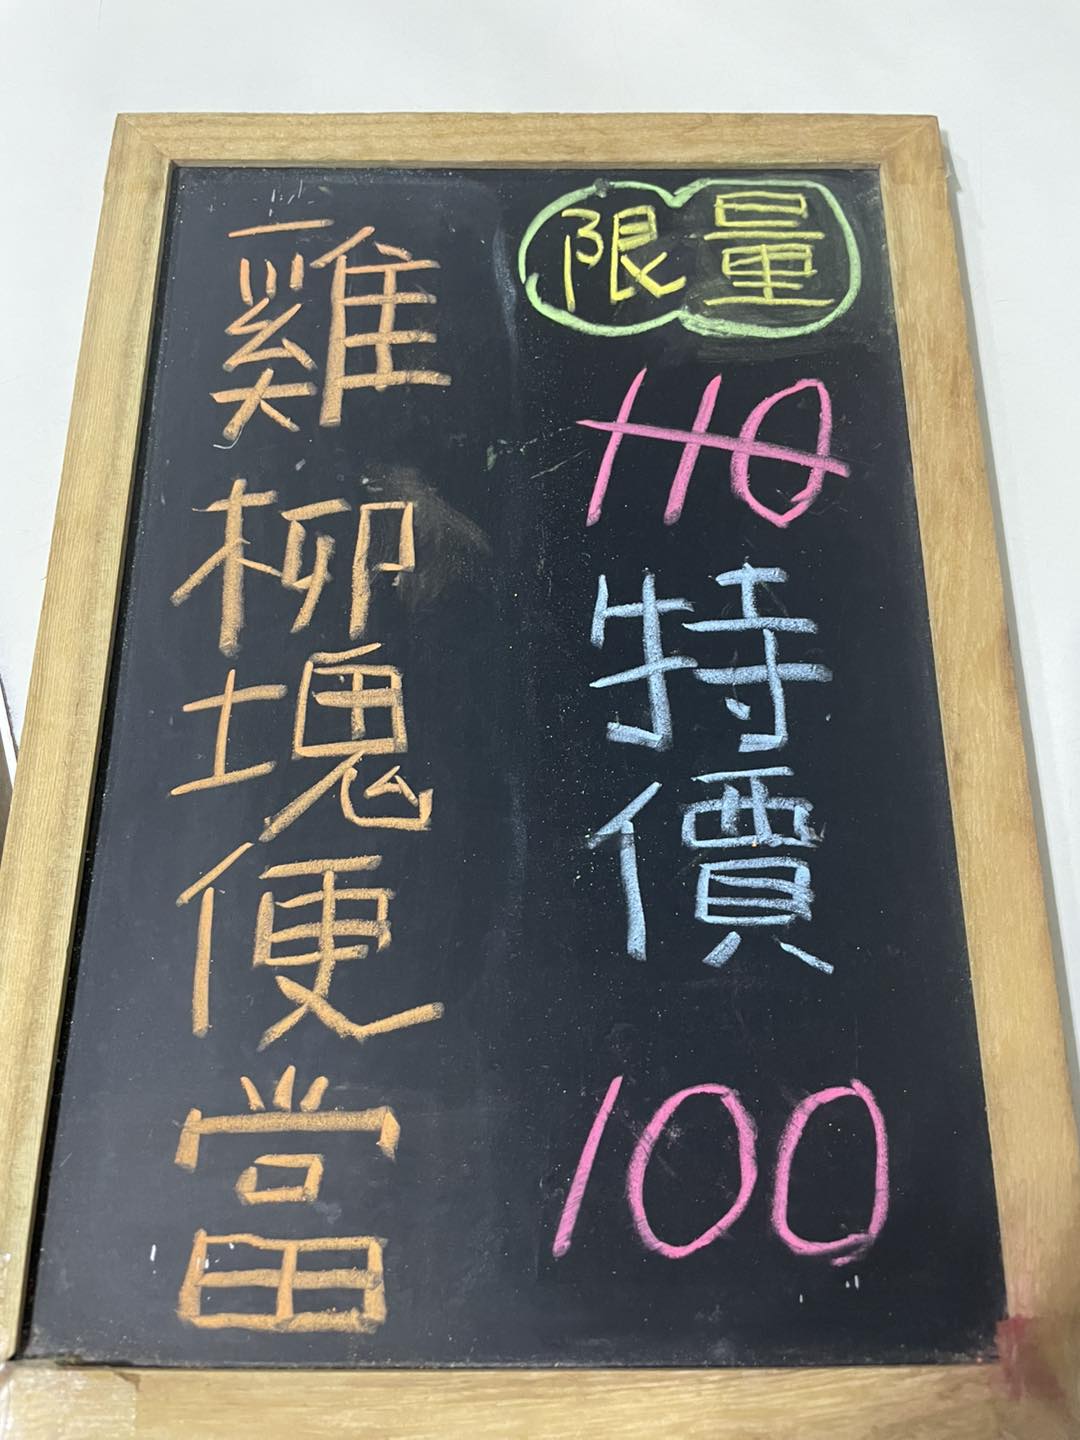 限量
110
特價
100
雞柳塊便當